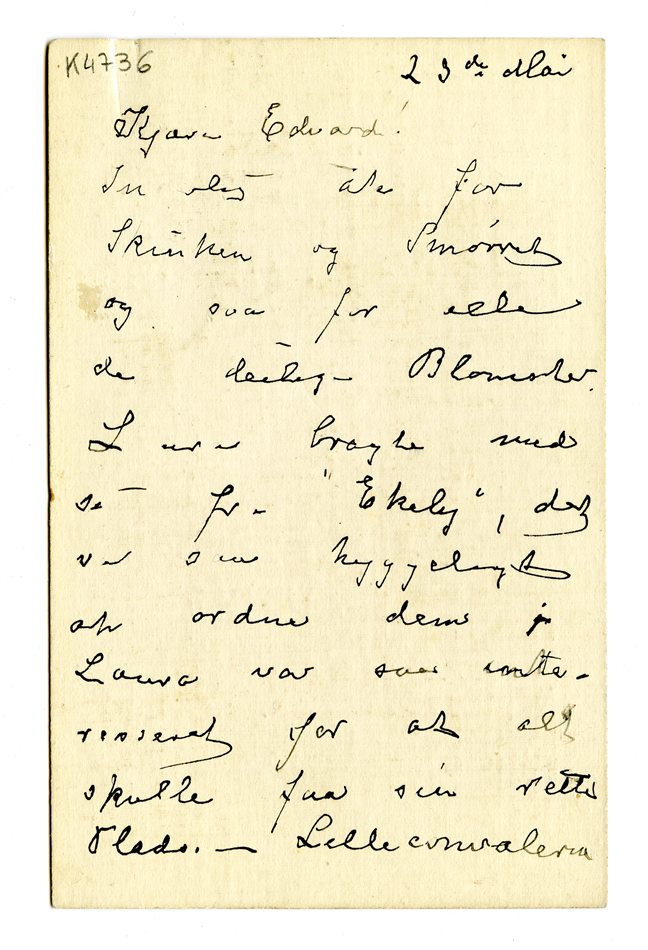 K4736
23de Mai
Kjære Edvard!
for
Skinken og Smørret
og saa for alle
de deilige Blomster.
Laura bragte med
sig fra "Ekely", det
var saa hyggeligt
at ordne dem
Laura var saa inte-
resseret for at alt
skulle faa sin rette
Plads. — Lilleconvalerne